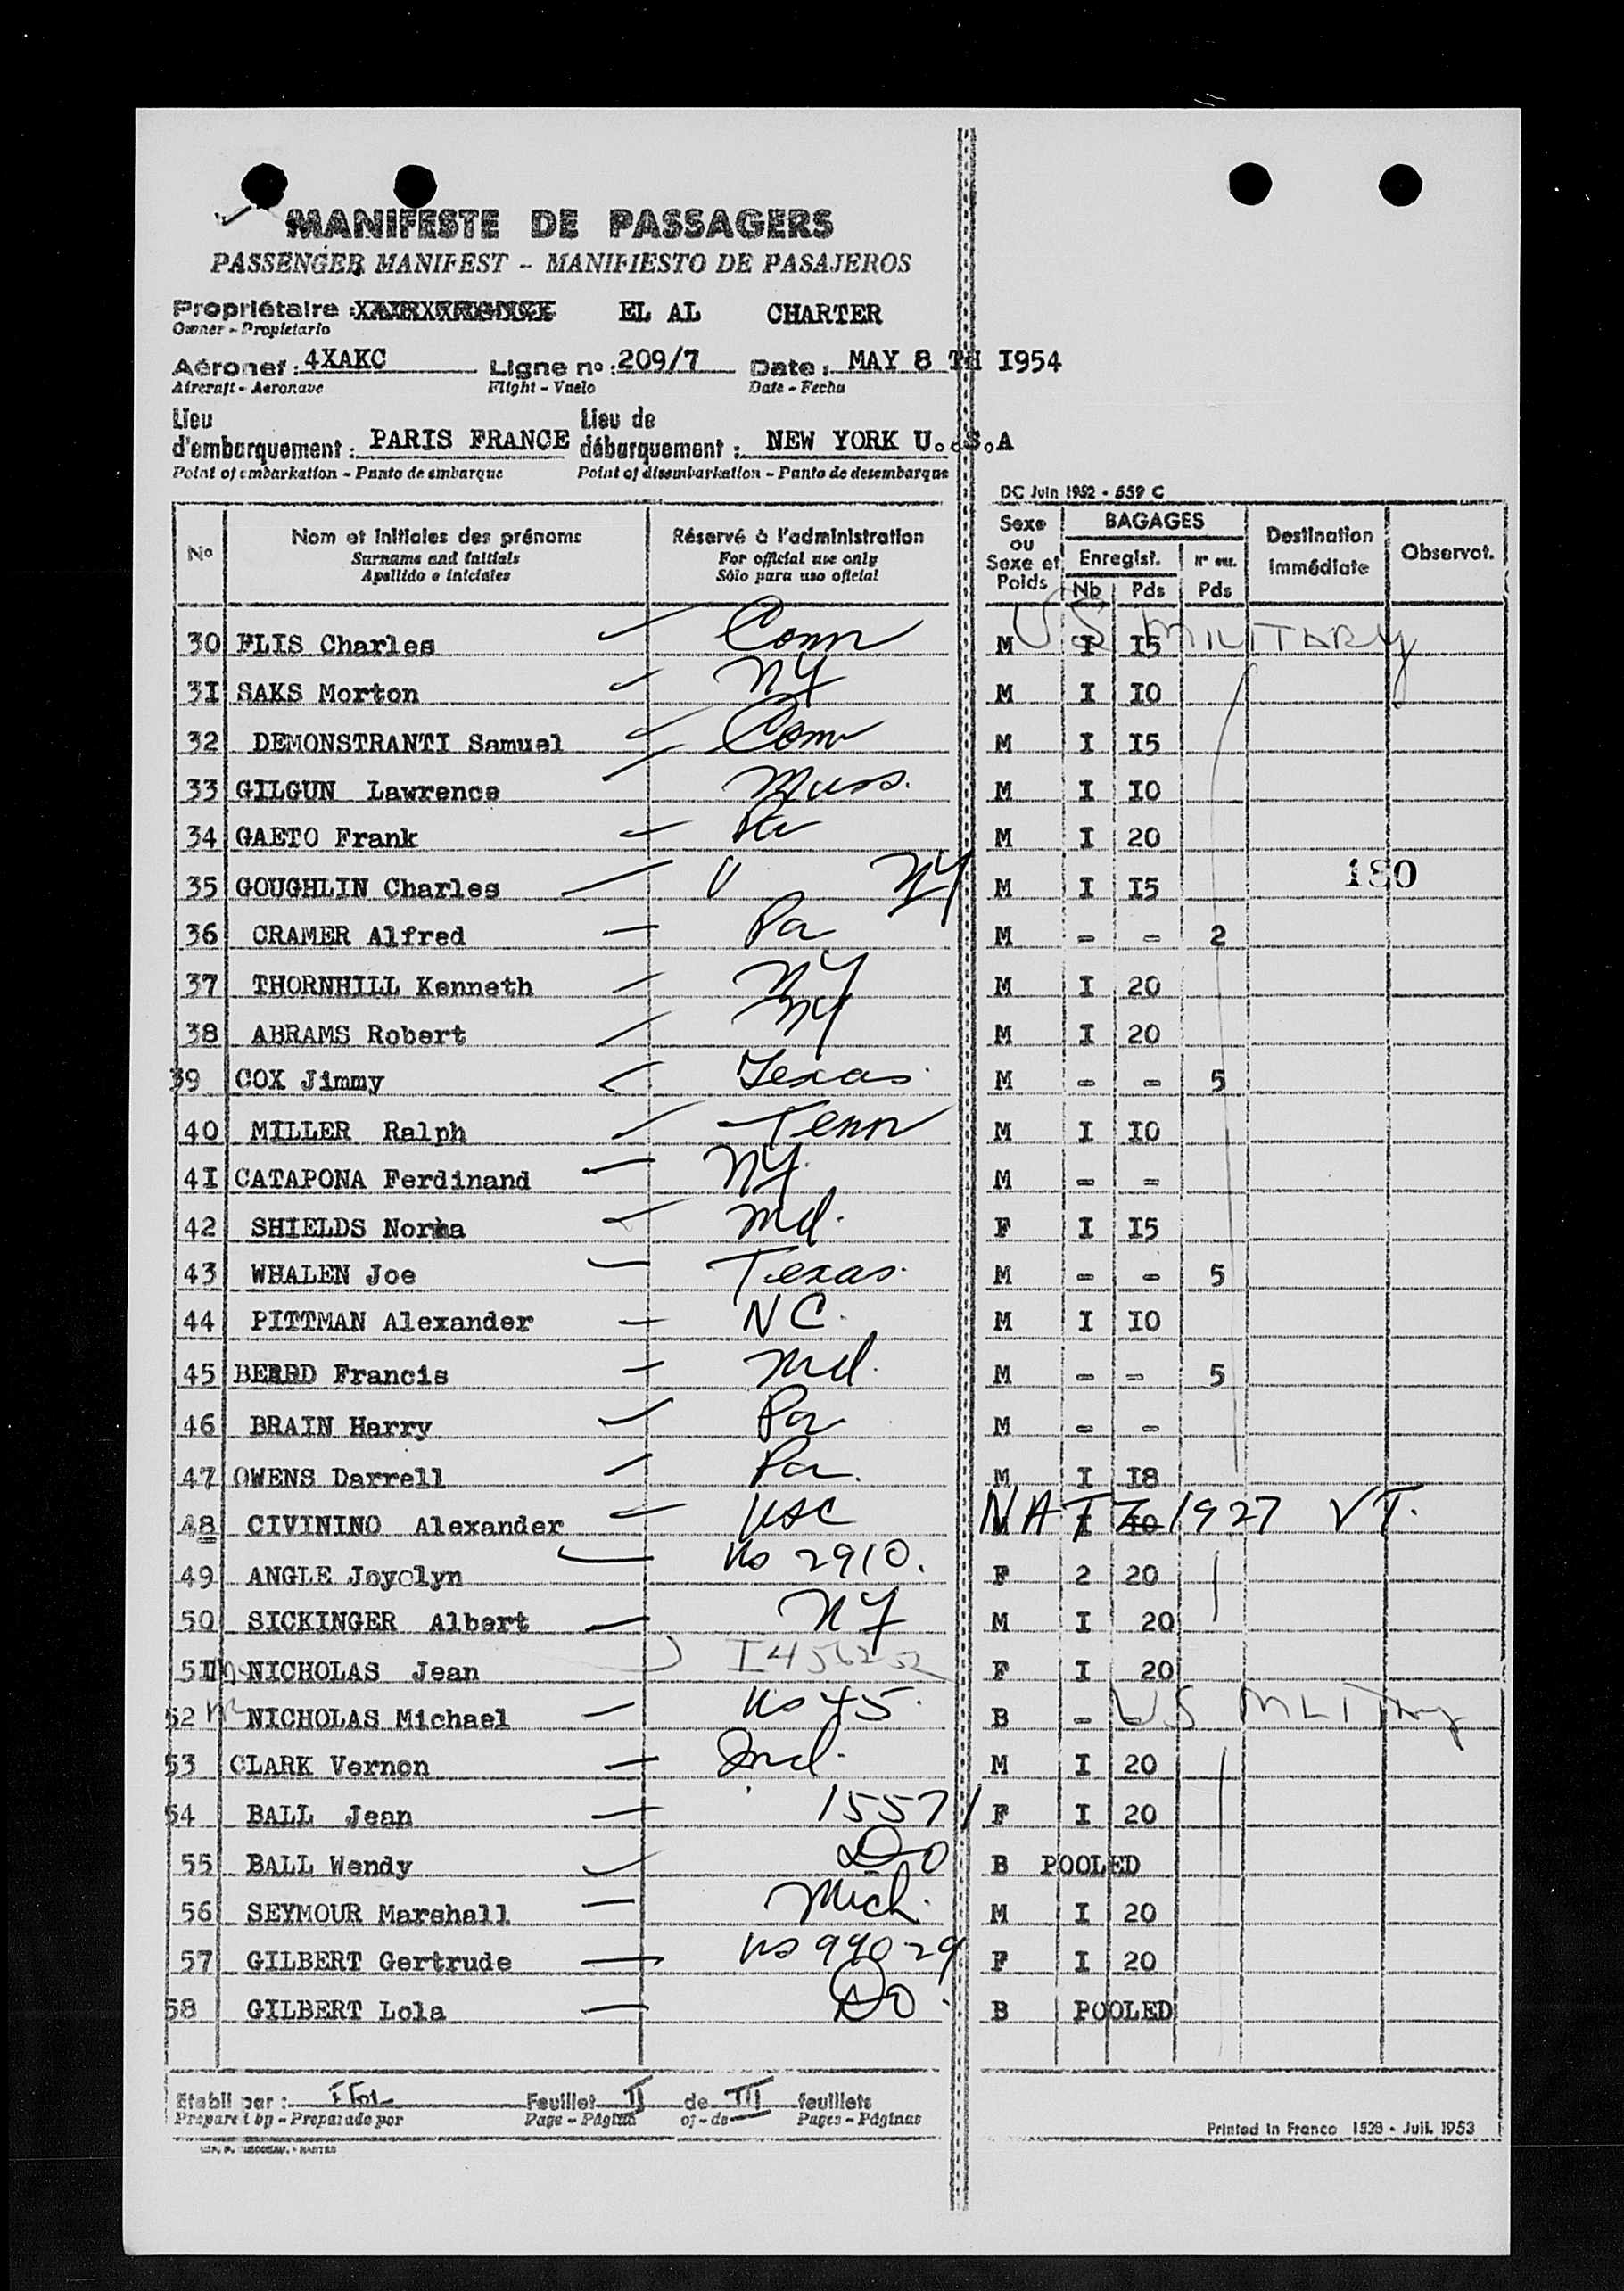 MANIFESTE DE PASSAGERS
PASSENGER MANIFEST - MANIFIESTO DE PASAJEROS
Propriétaire : EL AL CHARTER
Owner - Propietario
Aéronef : 4XAKC Ligne nº : 209/7 Date : MAY 8 TH I954
Aircraft - Aeronave Flight - Vuelo Date - Fecha
Lieu Lieu de
d'embarquement : PARIS FRANCE débarquement : NEW YORK U.S.A
Point of embarkation - Punto de embarque Point of disembarkation - Punto de desembarque
DC Juin 1952 - 559 C
Nº Nom et initiales des prénoms Réservé à l'administration Sexe ou Sexe et Poids BAGAGES Destination immédiate Observat.
Surname and initials For official use only Enregist. Nº enr.
Apellido e iniciales Sólo para uso oficial Nb Pds Pds
US MILITARY
30 FLIS Charles Conn M I I5
3I SAKS Morton NY M I I0
32 DEMONSTRANTI Samuel Conn M I I5
33 GILGUN Lawrence Mass. M I I0
34 GAETO Frank Pa M I 20
35 GOUGHLIN Charles NY M I I5 180
36 CRAMER Alfred Pa M - - 2
37 THORNHILL Kenneth NY M I 20
38 ABRAMS Robert NY M I 20
39 COX Jimmy Texas. M - - 5
40 MILLER Ralph Tenn M I I0
4I CATAPONA Ferdinand NY. M - -
42 SHIELDS Norma Md. F I I5
43 WHALEN Joe Texas. M - - 5
44 PITTMAN Alexander NC. M I I0
45 BEARD Francis Md. M - - 5
46 BRAIN Harry Pa M - -
47 OWENS Darrell Pa. M I I8
48 CIVININO Alexander USC M I NATZ 1927 VT.
49 ANGLE Joyclyn US 2910. F 2 20
50 SICKINGER Albert NY M I 20
5I NICHOLAS Jean I456252 F I 20
52 NICHOLAS Michael US 45. B - - US MLITARY
53 CLARK Vernon Ind. M I 20
54 BALL Jean 15571 F I 20
55 BALL Wendy Do B POOLED
56 SEYMOUR Marshall Mich. M I 20
57 GILBERT Gertrude US 99029 F I 20
58 GILBERT Lola Do. B POOLED
Etabli par : Feuillet II de III feuillets
Prepared by - Preparado por Page - Página of - de Pages - Páginas
Printed in France 1528 - Juil. 1953